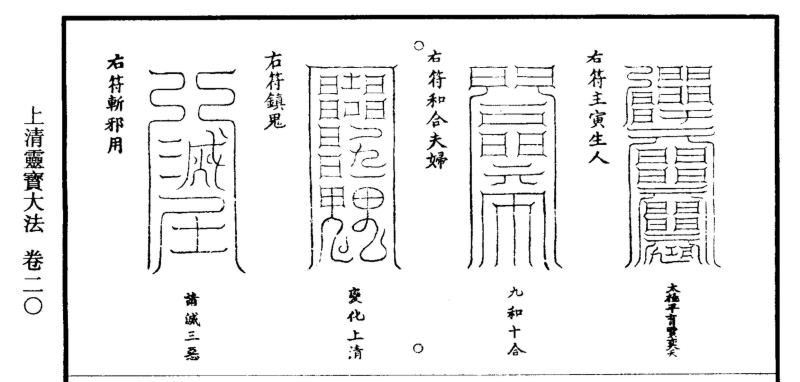 太極平育賈奕天
右符主寅生人
九和十合
右符和合夫婦
變化上清
右符鎮鬼
滅三惡
右符斬邪用
上清靈寶大法 卷二〇